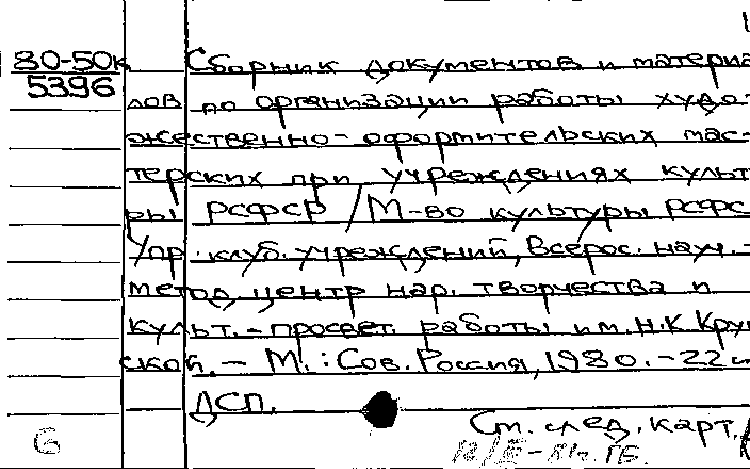 80-50к
5396
Сборник документов и материа
лов по организации работы худо-
жественно-оформительских мас-
терских при учреждениях культ
ры РСФСР / М-во культуры РСФС
Упр. клуб. учреждений, Всерос. науч.-
метод. центр нар. творчества и
культ.-просвет. работы им. Н.К Круп
ской. - М.: Сов. Россия, 1980. - 22
ДСП.
См. след. карт.
6